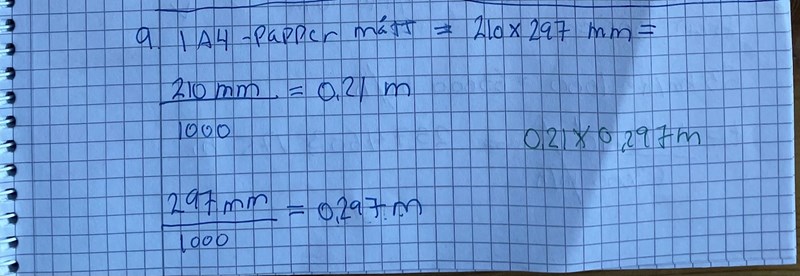 9. 1 A4-papper mått = 210 x 297 mm =
210 mm = 0,21 m
1000
0,21 x 0,297 m
297 mm = 0,297 m
1000